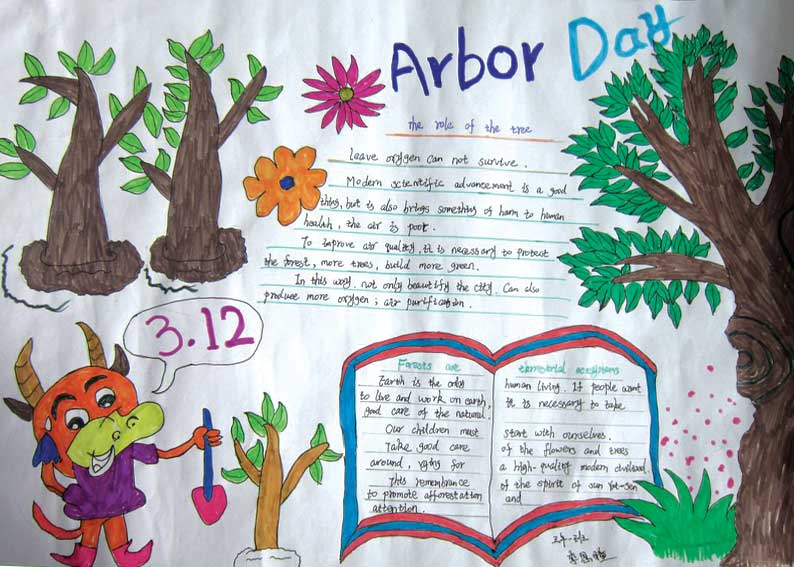 Arbor Day
The role of the tree
Leave oxygen can not survive.
Modern scientific advancement is a good
thing, but is also brings something of harm to human
health, the air is poor.
To improve air quality, it is necessary to protect
the forest, more trees, build more green.
In this way, not only beautify the city. Can also
produce more oxygen; air purification.
3.12
Forests are
Earth is the only
to live and work on earth,
good care of the natural.
Our children must
Take good care
around, for
This remembrance
to promote afforestation
attention.
territorial
human living. If people want
It is necessary to take
start with ourselves.
of the flowers and trees
a high-quality modern
of the spirit of sun Yat-sen
and